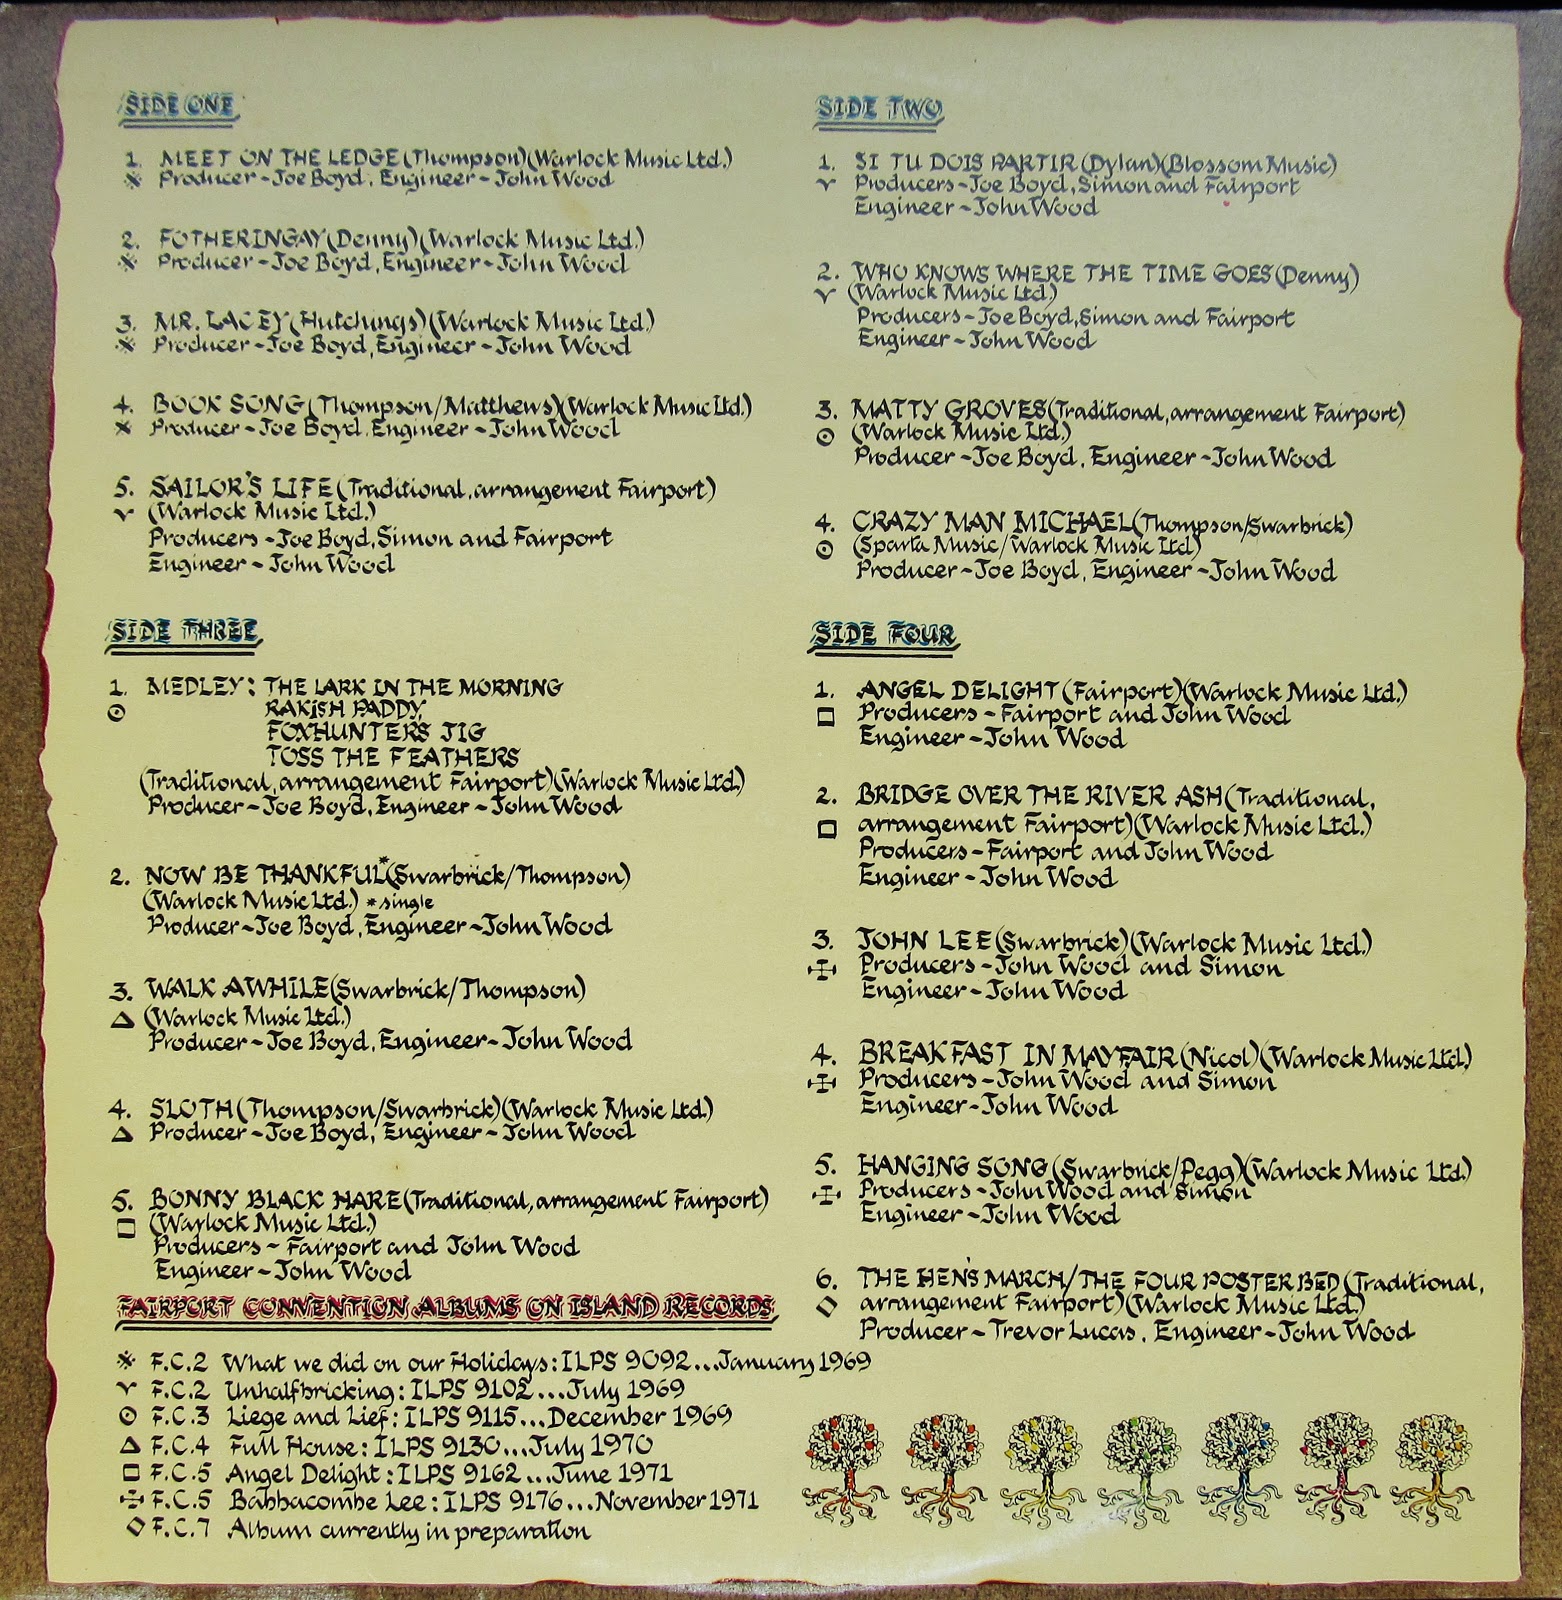 SIDE ONE
1. MEET ON THE LEDGE (Thompson)(Warlock Music Ltd.)
Producer - Joe Boyd, Engineer - John Wood
2. FOTHERINGAY (Denny)(Warlock Music Ltd.)
Producer - Joe Boyd, Engineer - John Wood
3. MR. LACEY (Hutchings)(Warlock Music Ltd.)
Producer - Joe Boyd, Engineer - John Wood
4. BOOK SONG (Thompson/Matthews)(Warlock Music Ltd.)
Producer - Joe Boyd, Engineer - John Wood
5. SAILOR'S LIFE (Traditional, arrangement Fairport)
(Warlock Music Ltd.)
Producers - Joe Boyd, Simon and Fairport
Engineer - John Wood
SIDE TWO
1. SI TU DOIS PARTIR (Dylan)(Blossom Music)
Producers - Joe Boyd, Simon and Fairport
Engineer - John Wood
2. WHO KNOWS WHERE THE TIME GOES (Denny)
(Warlock Music Ltd.)
Producers - Joe Boyd, Simon and Fairport
Engineer - John Wood
3. MATTY GROVES (Traditional, arrangement Fairport)
(Warlock Music Ltd.)
Producer - Joe Boyd, Engineer - John Wood
4. CRAZY MAN MICHAEL (Thompson/Swarbrick)
(Sparta Music/Warlock Music Ltd)
Producer - Joe Boyd, Engineer - John Wood
SIDE THREE
1. MEDLEY: THE LARK IN THE MORNING
RAKISH PADDY
FOXHUNTER'S JIG
TOSS THE FEATHERS
(Traditional, arrangement Fairport)(Warlock Music Ltd.)
Producer - Joe Boyd, Engineer - John Wood
2. NOW BE THANKFUL* (Swarbrick/Thompson)
(Warlock Music Ltd.) *single
Producer - Joe Boyd, Engineer - John Wood
3. WALK AWHILE (Swarbrick/Thompson)
(Warlock Music Ltd.)
Producer - Joe Boyd, Engineer - John Wood
4. SLOTH (Thompson/Swarbrick)(Warlock Music Ltd.)
Producer - Joe Boyd, Engineer - John Wood
5. BONNY BLACK HARE (Traditional, arrangement Fairport)
(Warlock Music Ltd.)
Producers - Fairport and John Wood
Engineer - John Wood
SIDE FOUR
1. ANGEL DELIGHT (Fairport)(Warlock Music Ltd.)
Producers - Fairport and John Wood
Engineer - John Wood
2. BRIDGE OVER THE RIVER ASH (Traditional,
arrangement Fairport)(Warlock Music Ltd.)
Producers - Fairport and John Wood
Engineer - John Wood
3. JOHN LEE (Swarbrick)(Warlock Music Ltd.)
Producers - John Wood and Simon
Engineer - John Wood
4. BREAKFAST IN MAYFAIR (Nicol)(Warlock Music Ltd.)
Producers - John Wood and Simon
Engineer - John Wood
5. HANGING SONG (Swarbrick/Pegg)(Warlock Music Ltd.)
Producers - John Wood and Simon
Engineer - John Wood
6. THE HEN'S MARCH/THE FOUR POSTER BED (Traditional,
arrangement Fairport)(Warlock Music Ltd.)
Producer - Trevor Lucas, Engineer - John Wood
FAIRPORT CONVENTION ALBUMS ON ISLAND RECORDS
F.C.2 What we did on our Holidays: ILPS 9092...January 1969
F.C.2 Unhalfbricking: ILPS 9102...July 1969
F.C.3 Liege and Lief: ILPS 9115...December 1969
F.C.4 Full House: ILPS 9130...July 1970
F.C.5 Angel Delight: ILPS 9162...June 1971
F.C.5 Babbacombe Lee: ILPS 9176...November 1971
F.C.7 Album currently in preparation